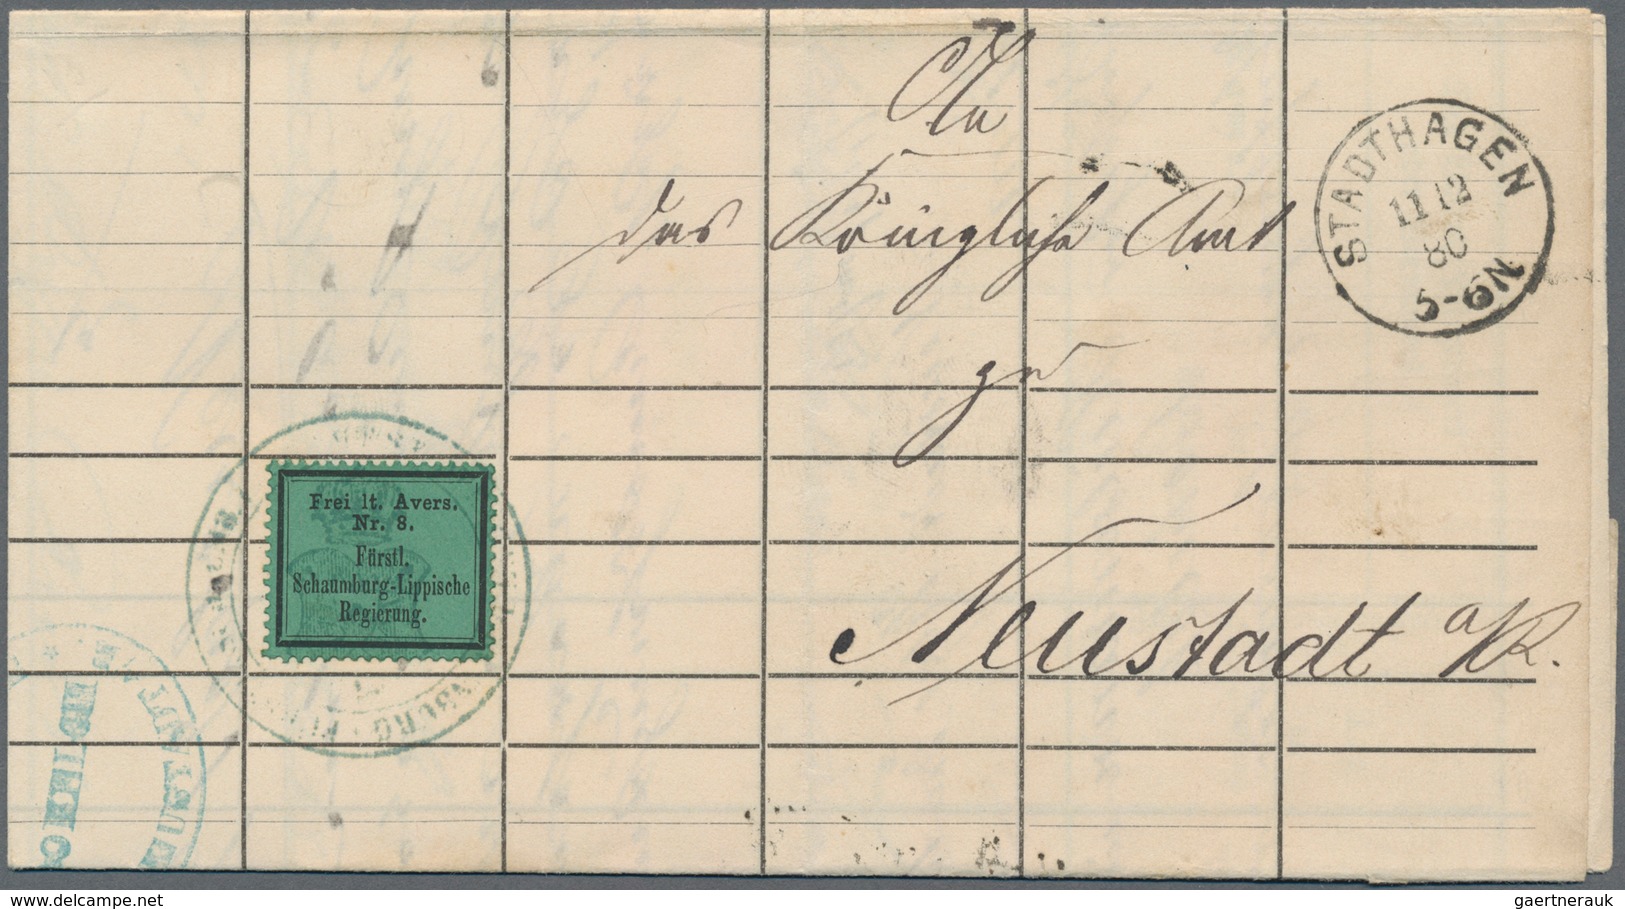 An
das Königliche Amt
zu
Neustadt a/R.
STADTHAGEN
11 12
80
5-6N
Frei lt. Avers.
Nr. 8.
Fürstl.
Schaumburg-Lippische
Regierung.
delcampe.net
gaertnerauk